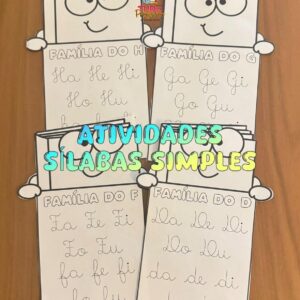 FAMÍLIA DO H
Ha He Hi
Ho Hu
FAMÍLIA DO G
Ga Ge Gi
Go Gu
ATIVIDADES
SÍLABAS SIMPLES
FAMÍLIA DO F
Fa Fe Fi
Fo Fu
fa fe fi
FAMÍLIA DO D
Da De Di
Do Du
da de di